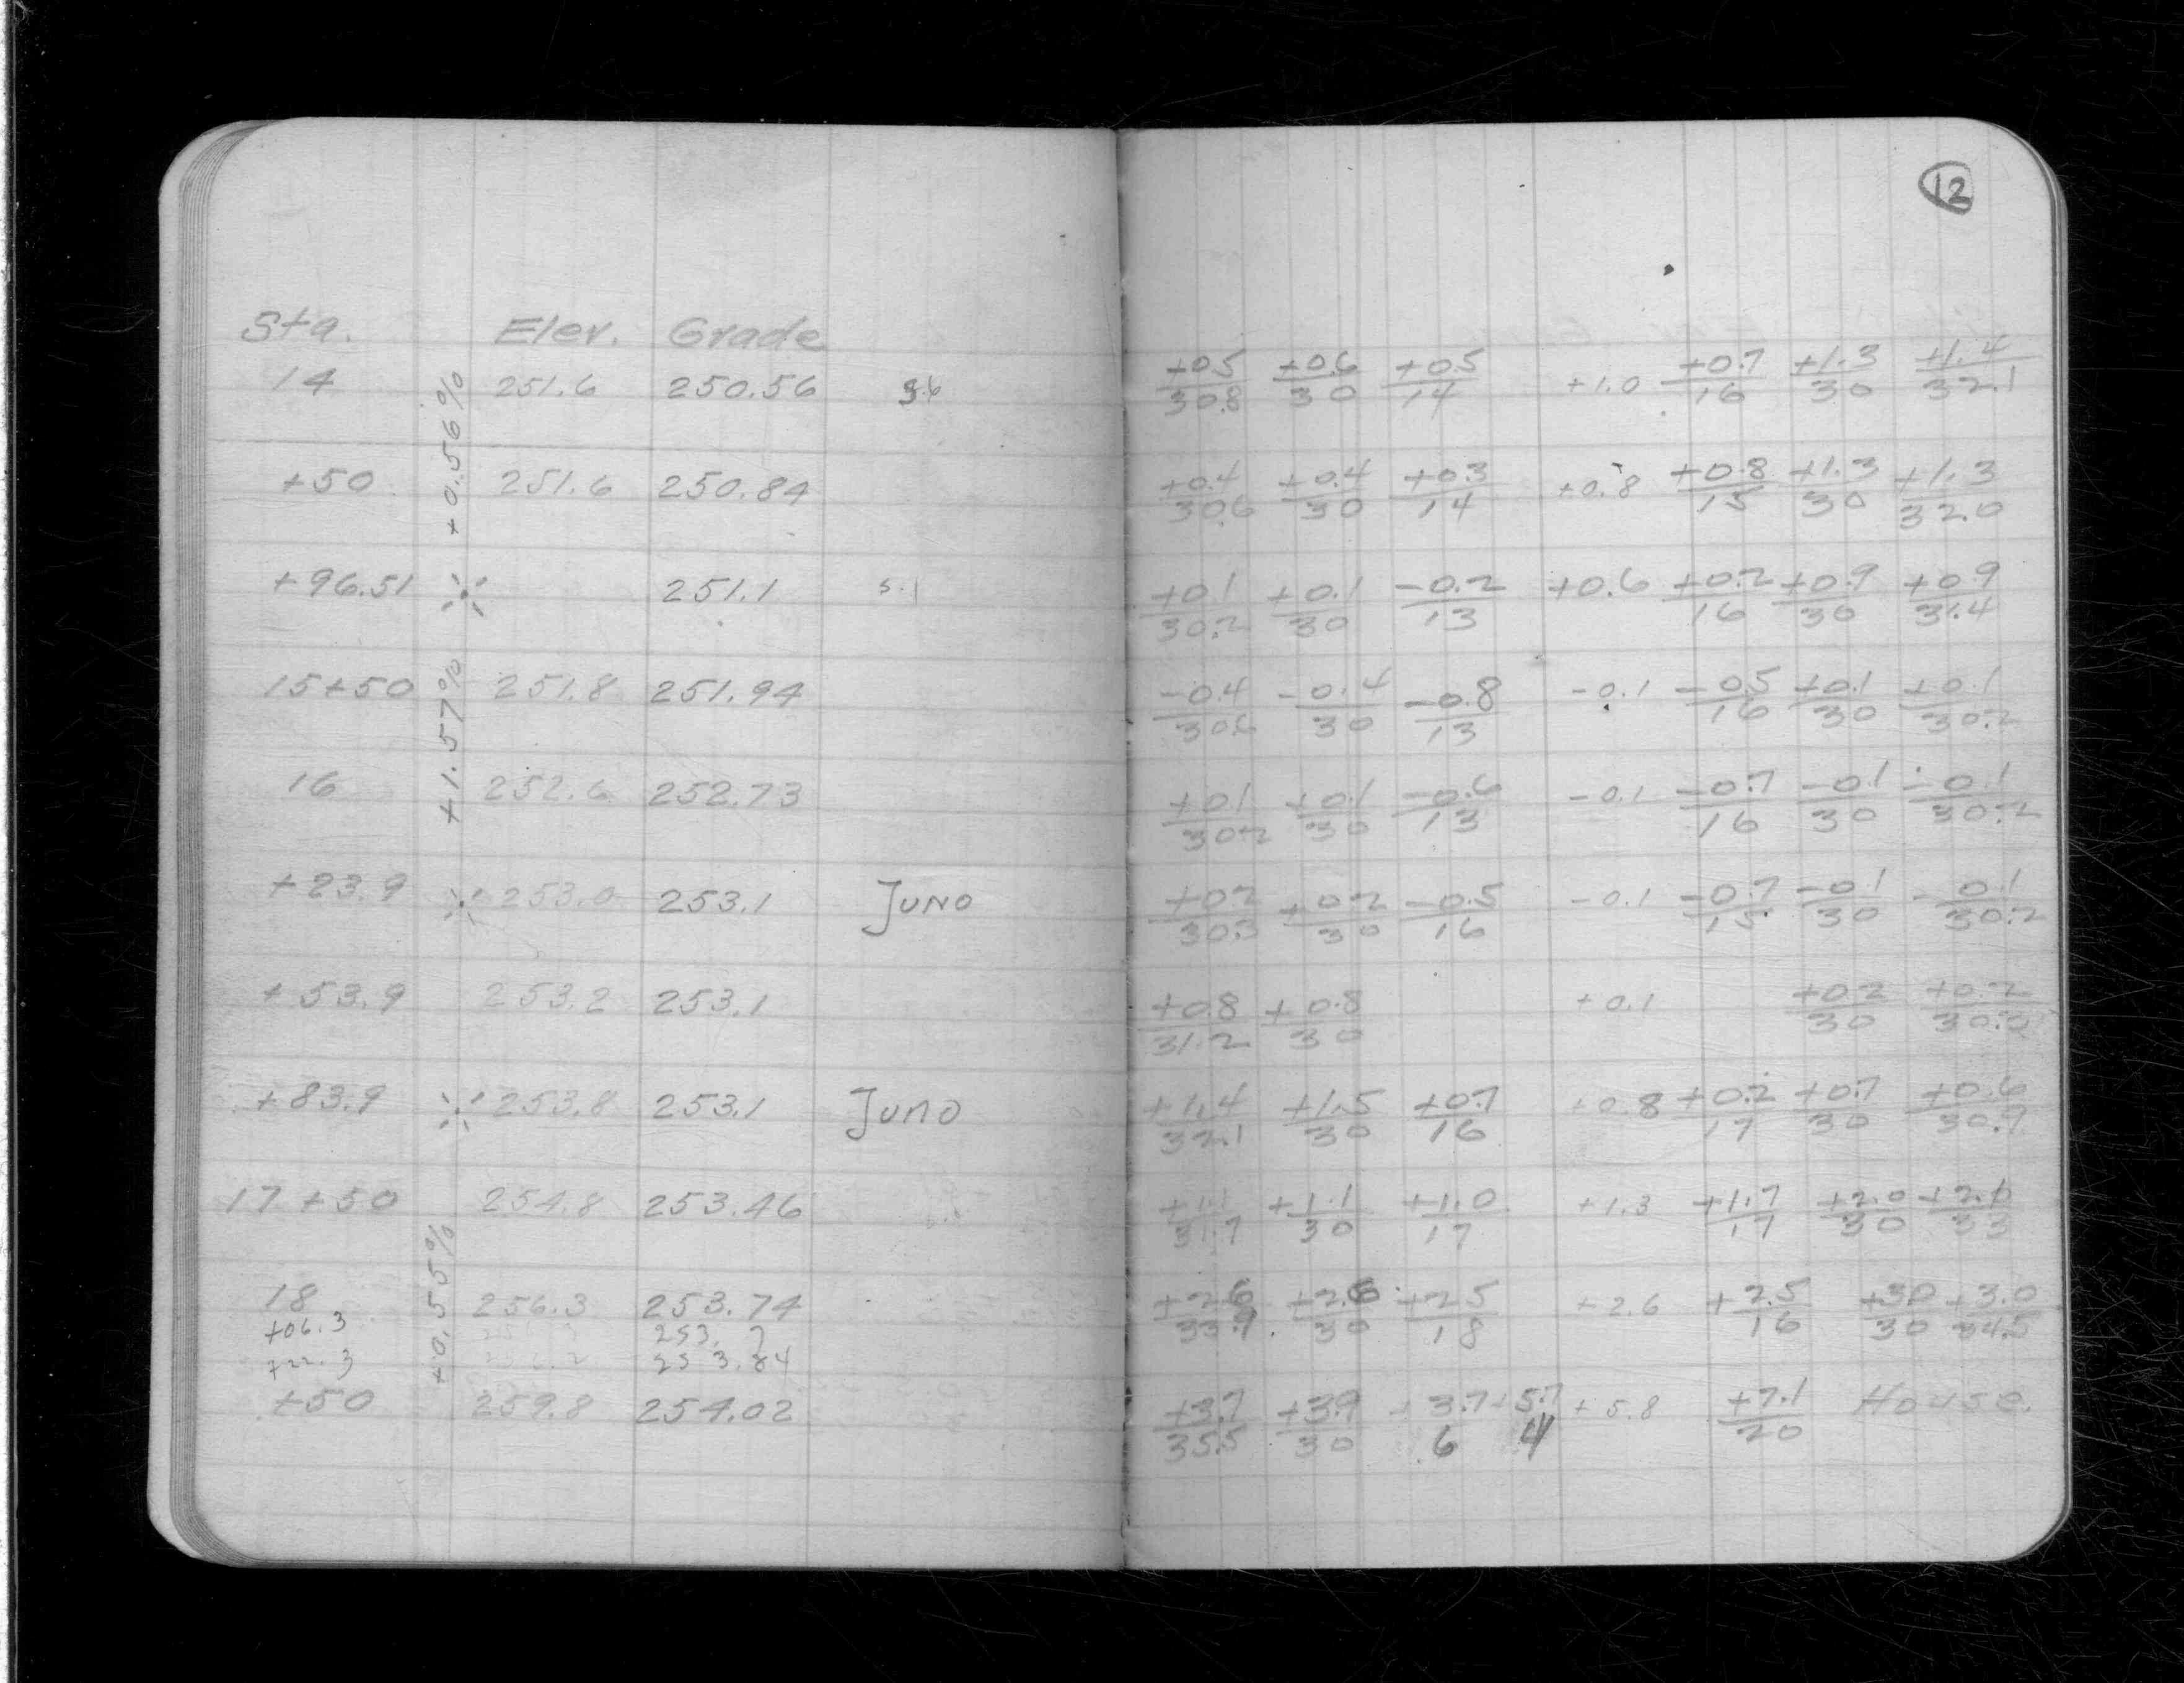 12
Sta. Elev. Grade
14 251.6 250.56 +0.5/30.8 +0.6/30 +0.5/14 +1.0 +0.7/16 +1.3/30 +1.4/32.1
+0.56%
+50 251.6 250.84 +0.4/30.6 +0.4/30 +0.3/14 +0.8 +0.8/15 +1.3/30 +1.3/32.0
+96.51 251.1 5.1 +0.1/30.2 +0.1/30 -0.2/13 +0.6 +0.2/16 +0.9/30 +0.9/31.4
15+50 251.8 251.94 -0.4/30.6 -0.4/30 -0.8/13 -0.1 -0.5/16 +0.1/30 +0.1/30.2
+1.57%
16 252.6 252.73 +0.1/30.2 +0.1/30 -0.6/13 -0.1 -0.7/16 -0.1/30 -0.1/30.2
+23.9 253.0 253.1 Juno +0.2/30.3 +0.2/30 -0.5/16 -0.1 -0.7/15 -0.1/30 -0.1/30.2
+53.9 253.2 253.1 +0.8/31.2 +0.8/30 +0.1 +0.2/30 +0.2
+83.9 253.8 253.1 Juno +1.4/32.1 +1.5/30 +0.7/16 +0.8 +0.2/17 +0.7/30 +0.6/30.9
17+50 254.8 253.46 +1.1/31.7 +1.1/30 +1.0/17 +1.3 +1.7/17 +2.0/30 +2.0/33
+0.55%
18 256.3 253.74 +2.6/33.9 +2.6/30 +2.5/18 +2.6 +2.5/16 +3.0/30 +3.0/34.5
+06.3
+22.3 253.84
+50 259.8 254.02 +3.7/35.5 +3.9/30 +3.7/6 +5.7/4 +5.8 +7.1/20 House.